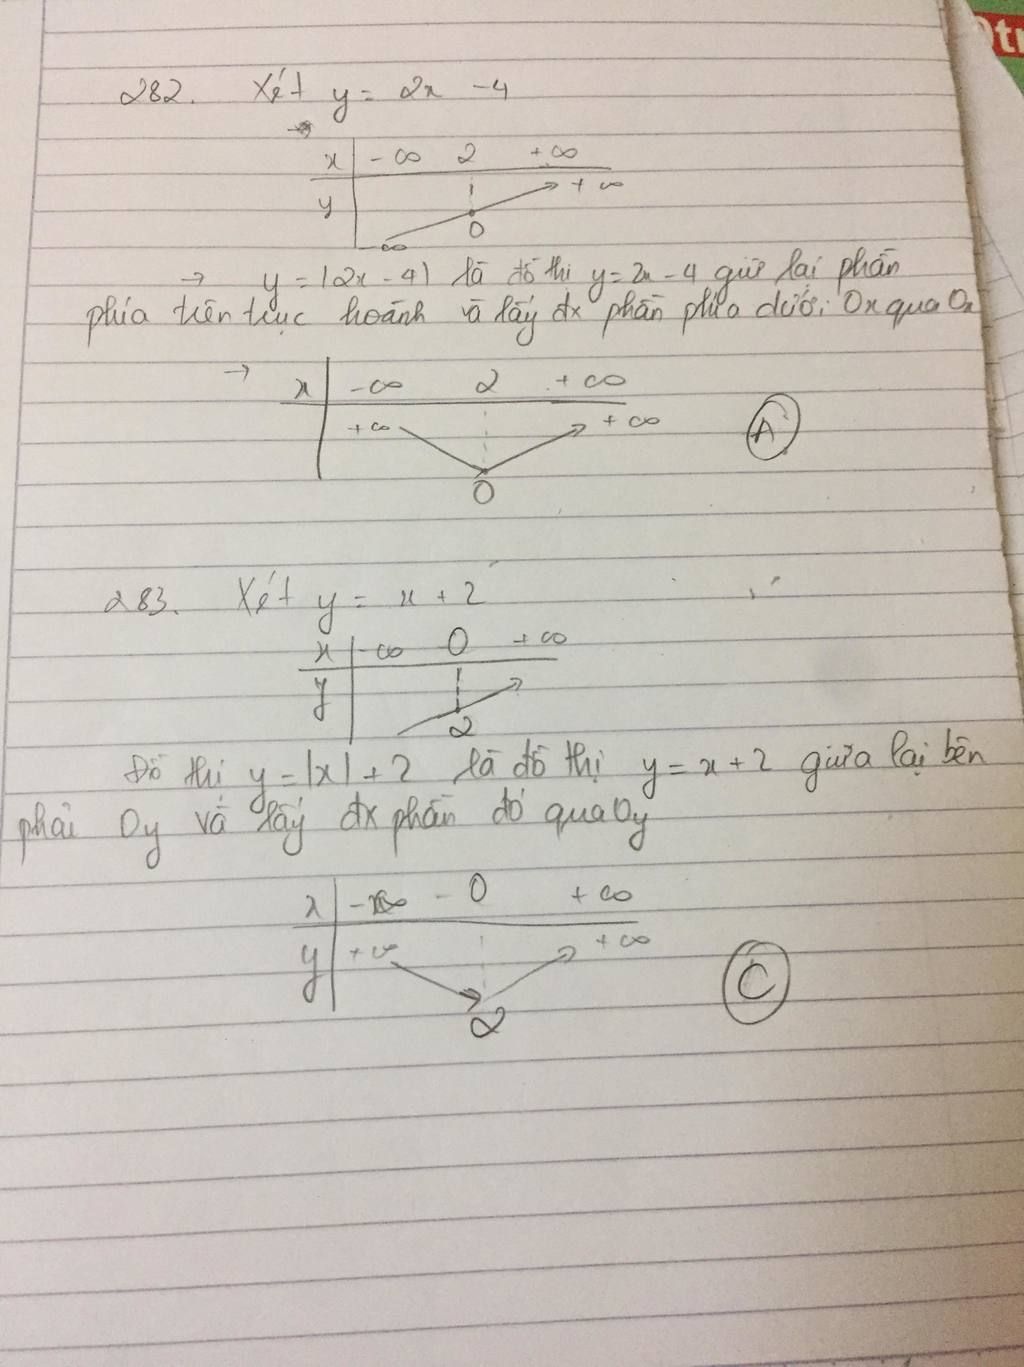 Otr
282. Xét y = 2x - 4
x | -∞ 2 +∞
y | -∞ 0 +∞
→ y = |2x - 4| là đồ thi y = 2x - 4 giữ lại phần
phía trên trục hoành và lấy đx phần phía dưới Ox qua Ox
→ x | -∞ 2 +∞
+∞ 0 +∞
A
283. Xét y = x + 2
x | -∞ 0 +∞
y | 2
Đồ thị y = |x| + 2 là đồ thị y = x + 2 giữa lại bên
phải Oy và lấy đx phần đó qua Oy
x | -∞ 0 +∞
y | +∞ 2 +∞
C